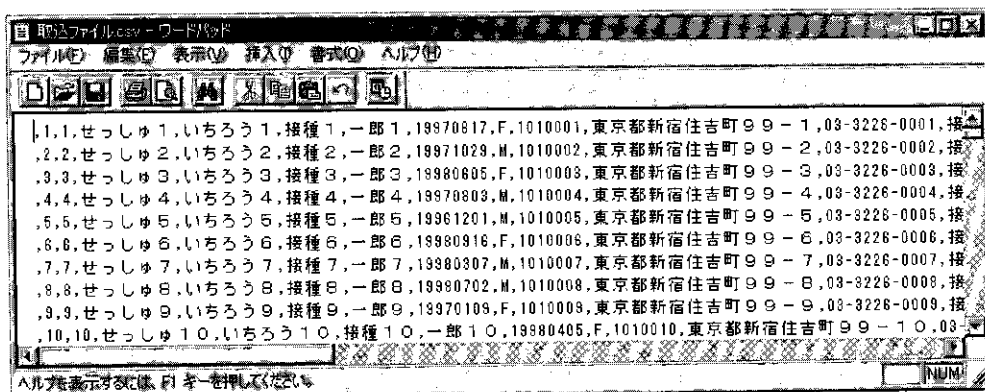 取込ファイル.csv - ワードパッド
ファイル(F) 編集(E) 表示(V) 挿入(I) 書式(O) ヘルプ(H)
,1,1,せっしゅ１,いちろう１,接種１,一郎１,19970817,F,1010001,東京都新宿住吉町９９－１,03-3226-0001,接
,2,2,せっしゅ２,いちろう２,接種２,一郎２,19971029,M,1010002,東京都新宿住吉町９９－２,03-3226-0002,接
,3,3,せっしゅ３,いちろう３,接種３,一郎３,19980605,F,1010003,東京都新宿住吉町９９－３,03-3226-0003,接
,4,4,せっしゅ４,いちろう４,接種４,一郎４,19970803,M,1010004,東京都新宿住吉町９９－４,03-3226-0004,接
,5,5,せっしゅ５,いちろう５,接種５,一郎５,19961201,M,1010005,東京都新宿住吉町９９－５,03-3226-0005,接
,6,6,せっしゅ６,いちろう６,接種６,一郎６,19980916,F,1010006,東京都新宿住吉町９９－６,03-3226-0006,接
,7,7,せっしゅ７,いちろう７,接種７,一郎７,19980307,M,1010007,東京都新宿住吉町９９－７,03-3226-0007,接
,8,8,せっしゅ８,いちろう８,接種８,一郎８,19980702,M,1010008,東京都新宿住吉町９９－８,03-3226-0008,接
,9,9,せっしゅ９,いちろう９,接種９,一郎９,19970109,F,1010009,東京都新宿住吉町９９－９,03-3226-0009,接
,10,10,せっしゅ１０,いちろう１０,接種１０,一郎１０,19980405,F,1010010,東京都新宿住吉町９９－１０,03-
ヘルプを表示するには、F1 キーを押してください。
NUM